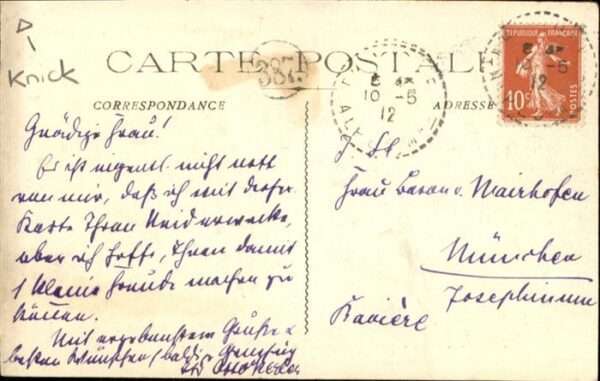 Knick
CARTE POSTALE
387
CORRESPONDANCE
ADRESSE
REPUBLIQUE FRANÇAISE
10c
POSTES
10 -5
12
-5
12
Gnädige Frau!
Es ist eigentl. nicht nett
von mir, daß ich mit dieser
Karte Ihren Neid erwecke,
aber ich hoffe, Ihnen damit
1 kleine Freude machen zu
können.
Mit ergebenstem Gruße u
besten Wünschen baldiger Genesung
Ihr Otto
Frau Baron v. Mairhofen
München
Josephinum
Bavière